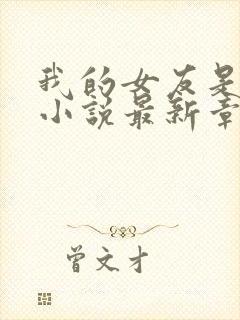 我的女友是
小说最新章
曾文才